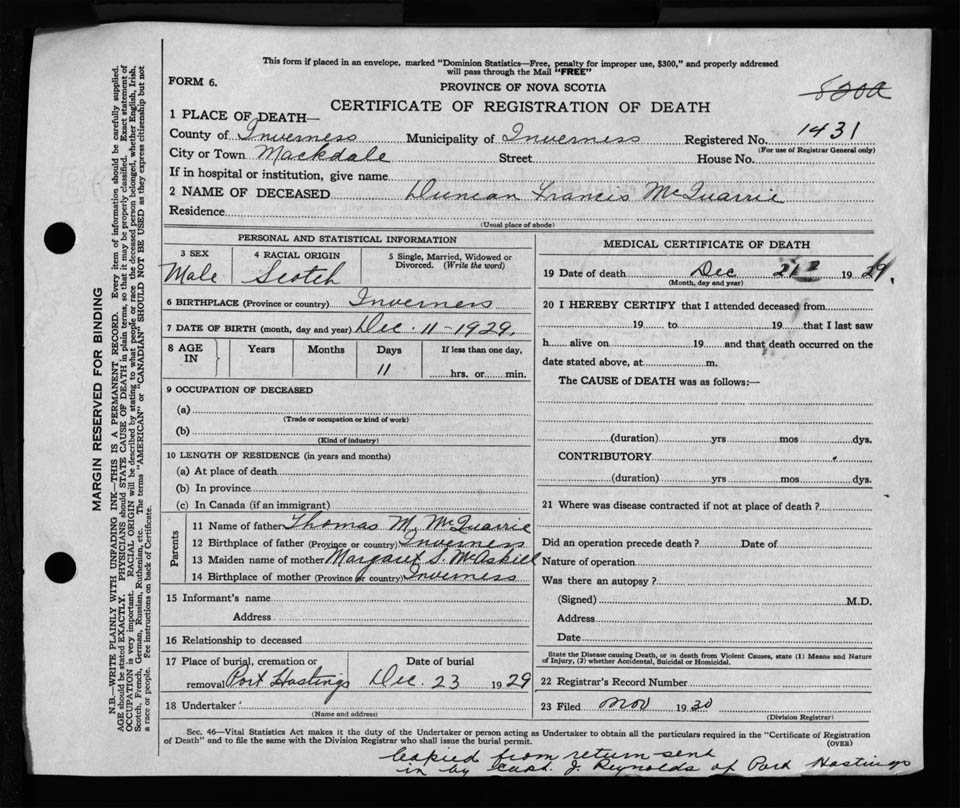 This form if placed in an envelope, marked "Dominion Statistics—Free, penalty for improper use, $300," and properly addressed
will pass through the Mail "FREE"
FORM 6.
PROVINCE OF NOVA SCOTIA
CERTIFICATE OF REGISTRATION OF DEATH
1 PLACE OF DEATH—
County of Inverness Municipality of Inverness Registered No. 1431
(For use of Registrar General only)
City or Town Mackdale Street House No.
If in hospital or institution, give name
2 NAME OF DECEASED Duncan Francis McQuarrie
Residence
(Usual place of abode)
PERSONAL AND STATISTICAL INFORMATION
3 SEX 4 RACIAL ORIGIN 5 Single, Married, Widowed or
Divorced. (Write the word)
Male Scotch
6 BIRTHPLACE (Province or country) Inverness
7 DATE OF BIRTH (month, day and year) Dec. 11-1929.
8 AGE IN Years Months Days If less than one day,
11 hrs. or min.
9 OCCUPATION OF DECEASED
(a)
(Trade or occupation or kind of work)
(b)
(Kind of industry)
10 LENGTH OF RESIDENCE (in years and months)
(a) At place of death
(b) In province
(c) In Canada (if an immigrant)
Parents
11 Name of father Thomas M. McQuarrie
12 Birthplace of father (Province or country) Inverness
13 Maiden name of mother Margaret S. McAskill
14 Birthplace of mother (Province or country) Inverness
15 Informant's name
Address
16 Relationship to deceased
17 Place of burial, cremation or Date of burial
removal Port Hastings Dec. 23 1929
18 Undertaker
(Name and address)
MEDICAL CERTIFICATE OF DEATH
19 Date of death Dec 1929.
(Month, day and year)
20 I HEREBY CERTIFY that I attended deceased from
19 to 19 that I last saw
h alive on 19 and that death occurred on the
date stated above, at m.
The CAUSE of DEATH was as follows:—
(duration) yrs mos dys.
CONTRIBUTORY
(duration) yrs mos dys.
21 Where was disease contracted if not at place of death?
Did an operation precede death? Date of
Nature of operation
Was there an autopsy?
(Signed) M.D.
Address
Date
State the Disease causing Death, or in death from Violent Causes, state (1) Means and Nature
of Injury, (2) whether Accidental, Suicidal or Homicidal.
22 Registrar's Record Number
23 Filed Nov 1930
(Division Registrar)
Sec. 46—Vital Statistics Act makes it the duty of the Undertaker or person acting as Undertaker to obtain all the particulars required in the "Certificate of Registration
of Death" and to file the same with the Division Registrar who shall issue the burial permit.
(OVER)
Copied from return sent
in by Capt. J. Reynolds of Port Hastings
MARGIN RESERVED FOR BINDING
N.B.—WRITE PLAINLY WITH UNFADING INK—THIS IS A PERMANENT RECORD. Every item of information should be carefully supplied.
AGE should be stated EXACTLY. PHYSICIANS should STATE CAUSE OF DEATH in plain terms, so that it may be properly classified. Exact statement of
OCCUPATION is very important. RACIAL ORIGIN will be described by stating to what people or race the deceased person belonged, whether English, Irish,
Scotch, French, German, Russian, Ruthenian, etc. The terms "AMERICAN" or "CANADIAN" SHOULD NOT BE USED as they express citizenship but not
a race or people. See instructions on back of Certificate.